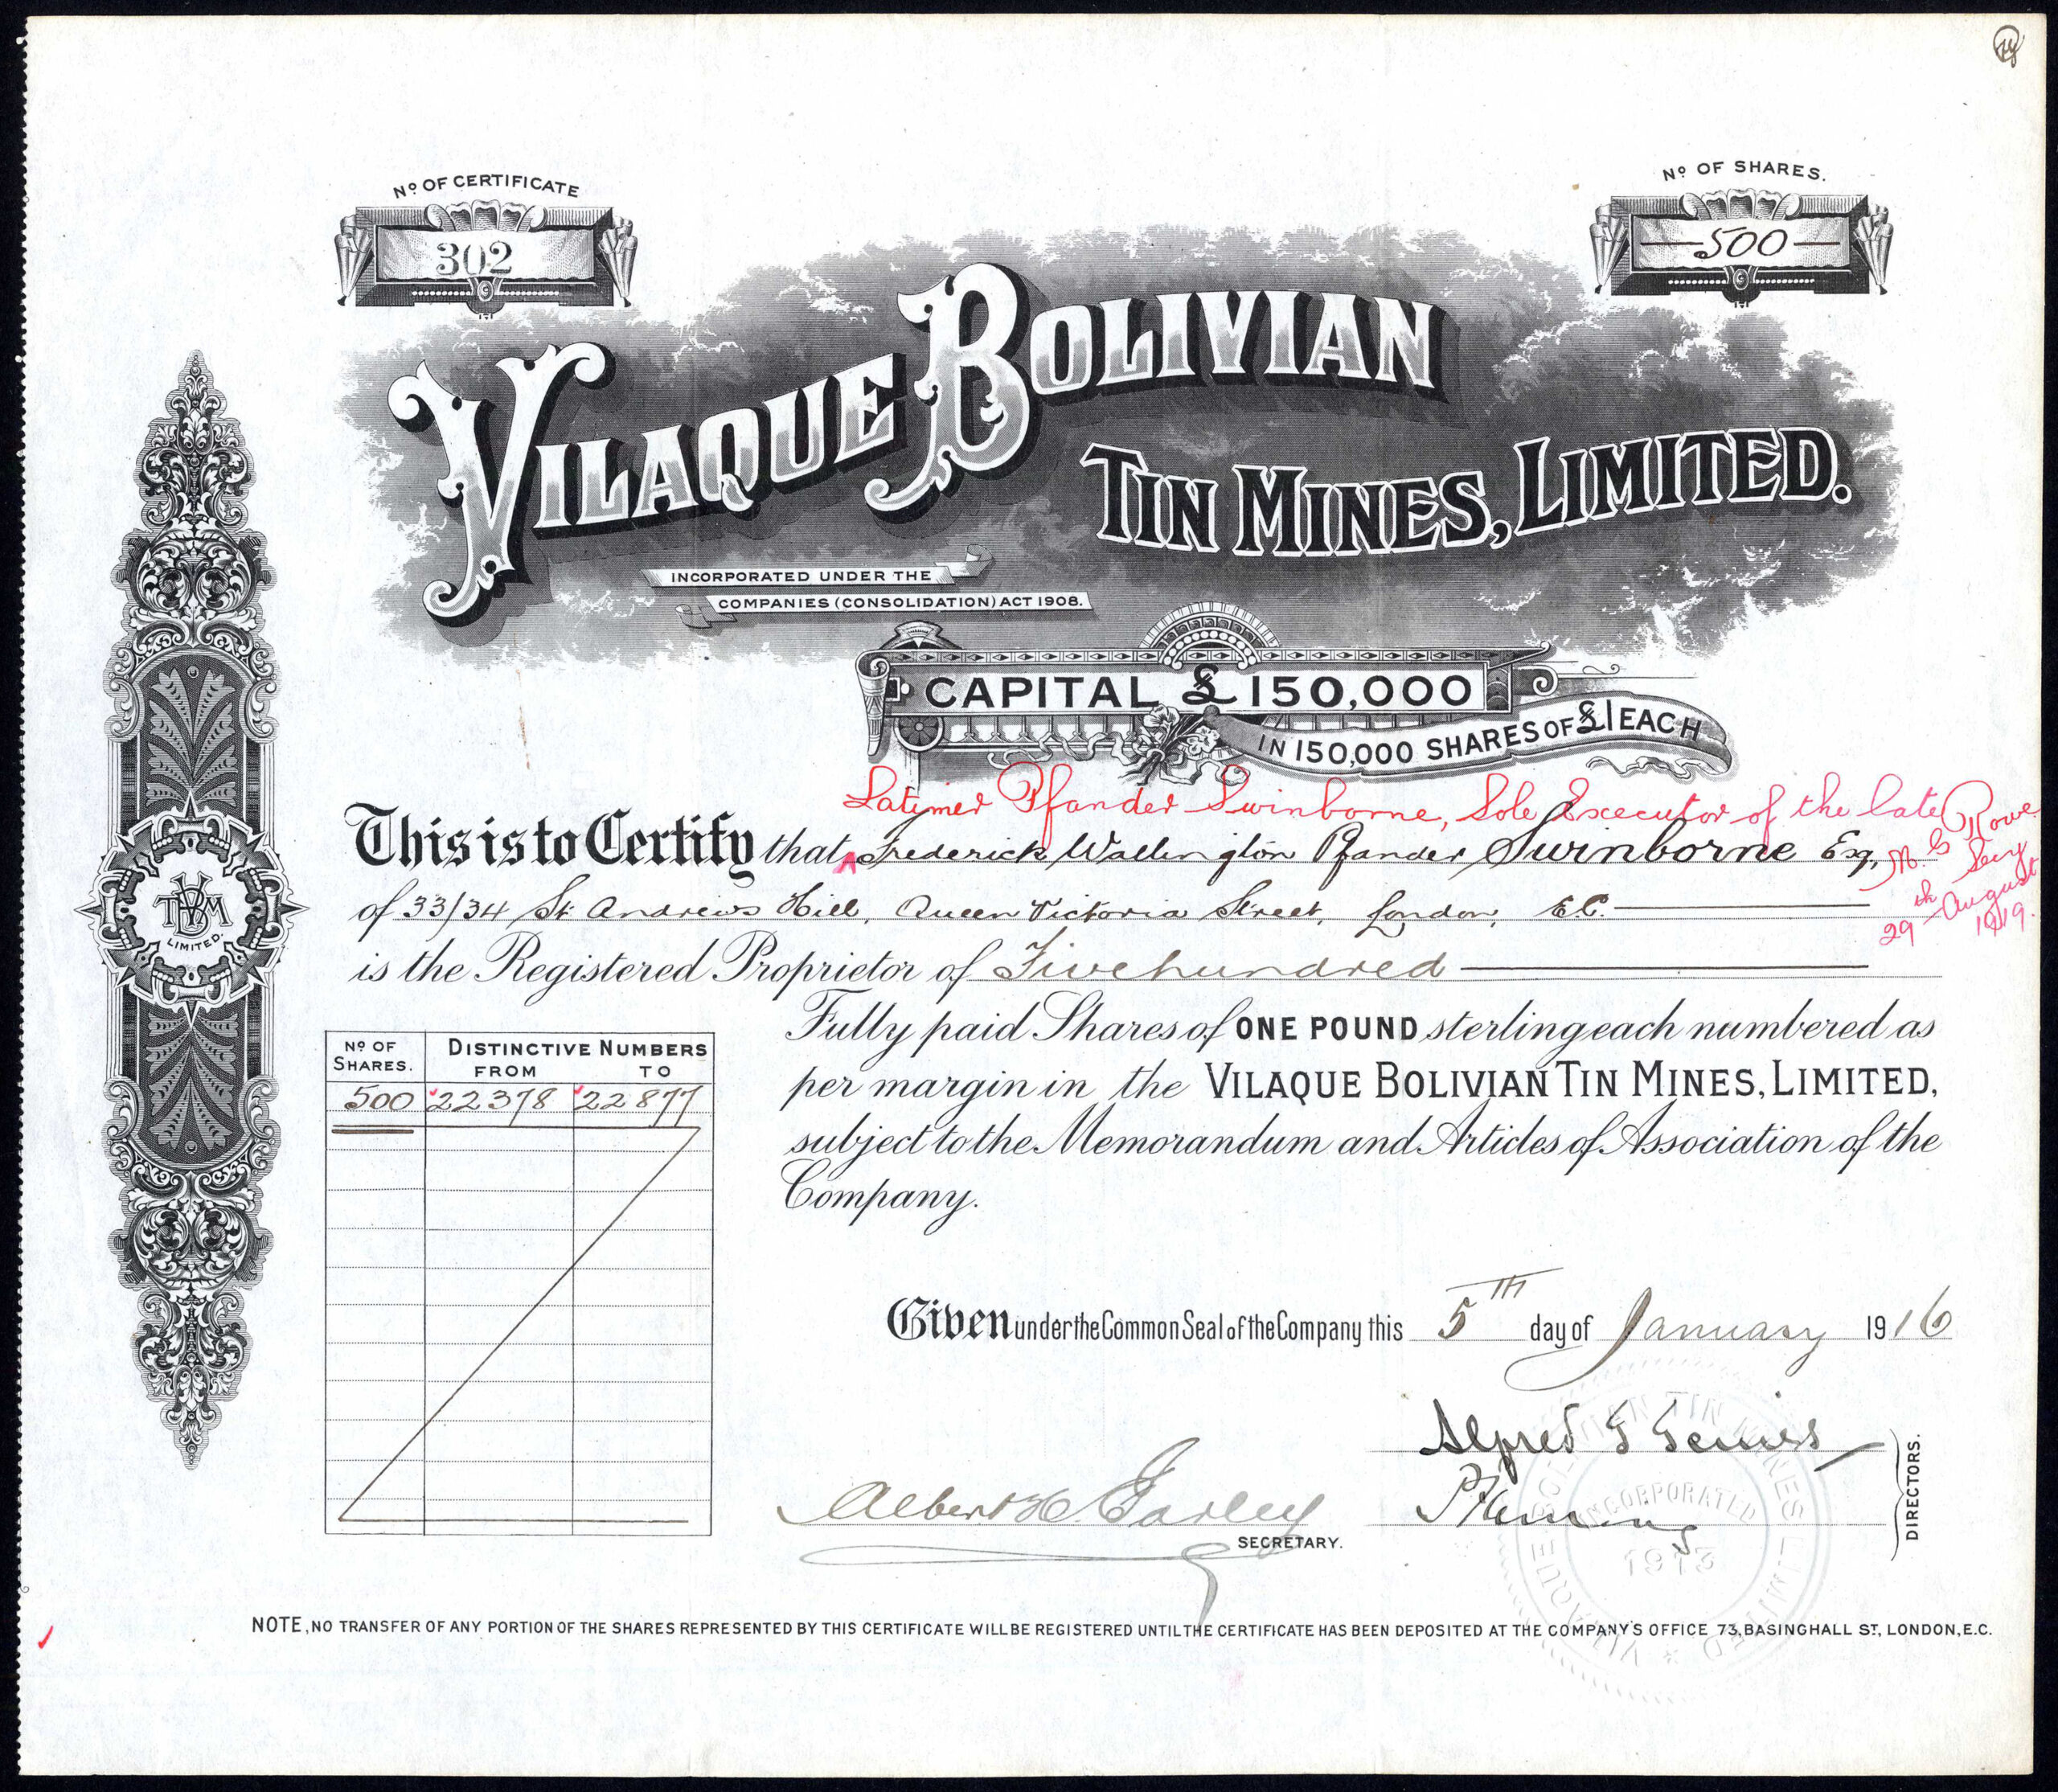 Nº OF CERTIFICATE
302
Nº OF SHARES.
500
VILAQUE BOLIVIAN
TIN MINES, LIMITED.
INCORPORATED UNDER THE
COMPANIES (CONSOLIDATION) ACT 1908.
CAPITAL £150,000
IN 150,000 SHARES OF £1 EACH
Latimer Pfander Swinborne, Sole Executor of the late
This is to Certify that Frederick Wallington Pfander Swinborne Esq,
29th August 1919.
of 33/34 St Andrews Hill, Queen Victoria Street, London, E.C.
is the Registered Proprietor of Five hundred
Fully paid Shares of ONE POUND sterling each numbered as
per margin in the VILAQUE BOLIVIAN TIN MINES, LIMITED,
subject to the Memorandum and Articles of Association of the
Company.
Nº OF SHARES. DISTINCTIVE NUMBERS
FROM TO
500 22378 22877
VBTM
LIMITED.
Given under the Common Seal of the Company this 5TH day of January 1916
Albert H.
SECRETARY.
Alfred
DIRECTORS.
VILAQUE BOLIVIAN TIN MINES LIMITED
INCORPORATED
1913
NOTE, NO TRANSFER OF ANY PORTION OF THE SHARES REPRESENTED BY THIS CERTIFICATE WILL BE REGISTERED UNTIL THE CERTIFICATE HAS BEEN DEPOSITED AT THE COMPANY'S OFFICE 73, BASINGHALL ST, LONDON, E.C.